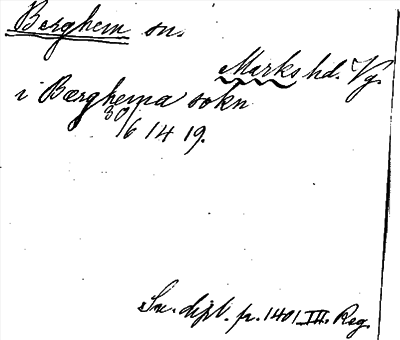 Berghem sn.
Marks hd. Vg.
i Bærghema sokn
30/6 1419.
Sv. dipl. fr. 1401 III. Reg.